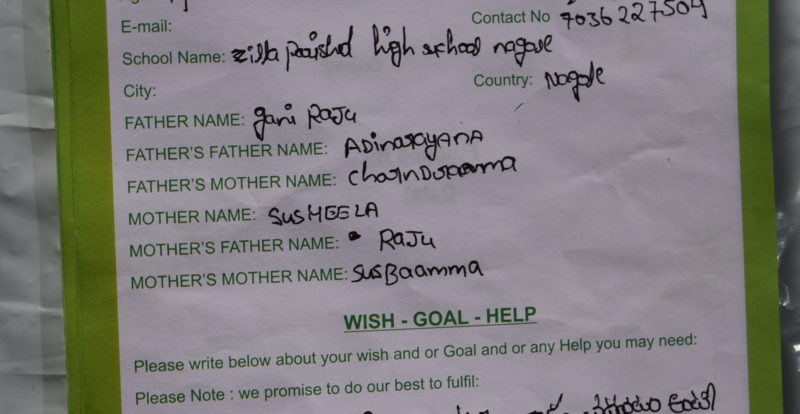 E-mail:
Contact No 7036227504
School Name: zilla parishd high school nagale
City:
Country: Nagale
FATHER NAME: gani RAJU
FATHER'S FATHER NAME: ADinarayANA
FATHER'S MOTHER NAME:
MOTHER NAME: SUSHEELA
MOTHER'S FATHER NAME: RAJU
MOTHER'S MOTHER NAME: SusBaamma
WISH - GOAL - HELP
Please write below about your wish and or Goal and or any Help you may need:
Please Note : we promise to do our best to fulfil: